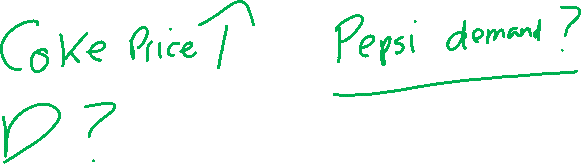 Coke Price ↑
Pepsi demand?
D?